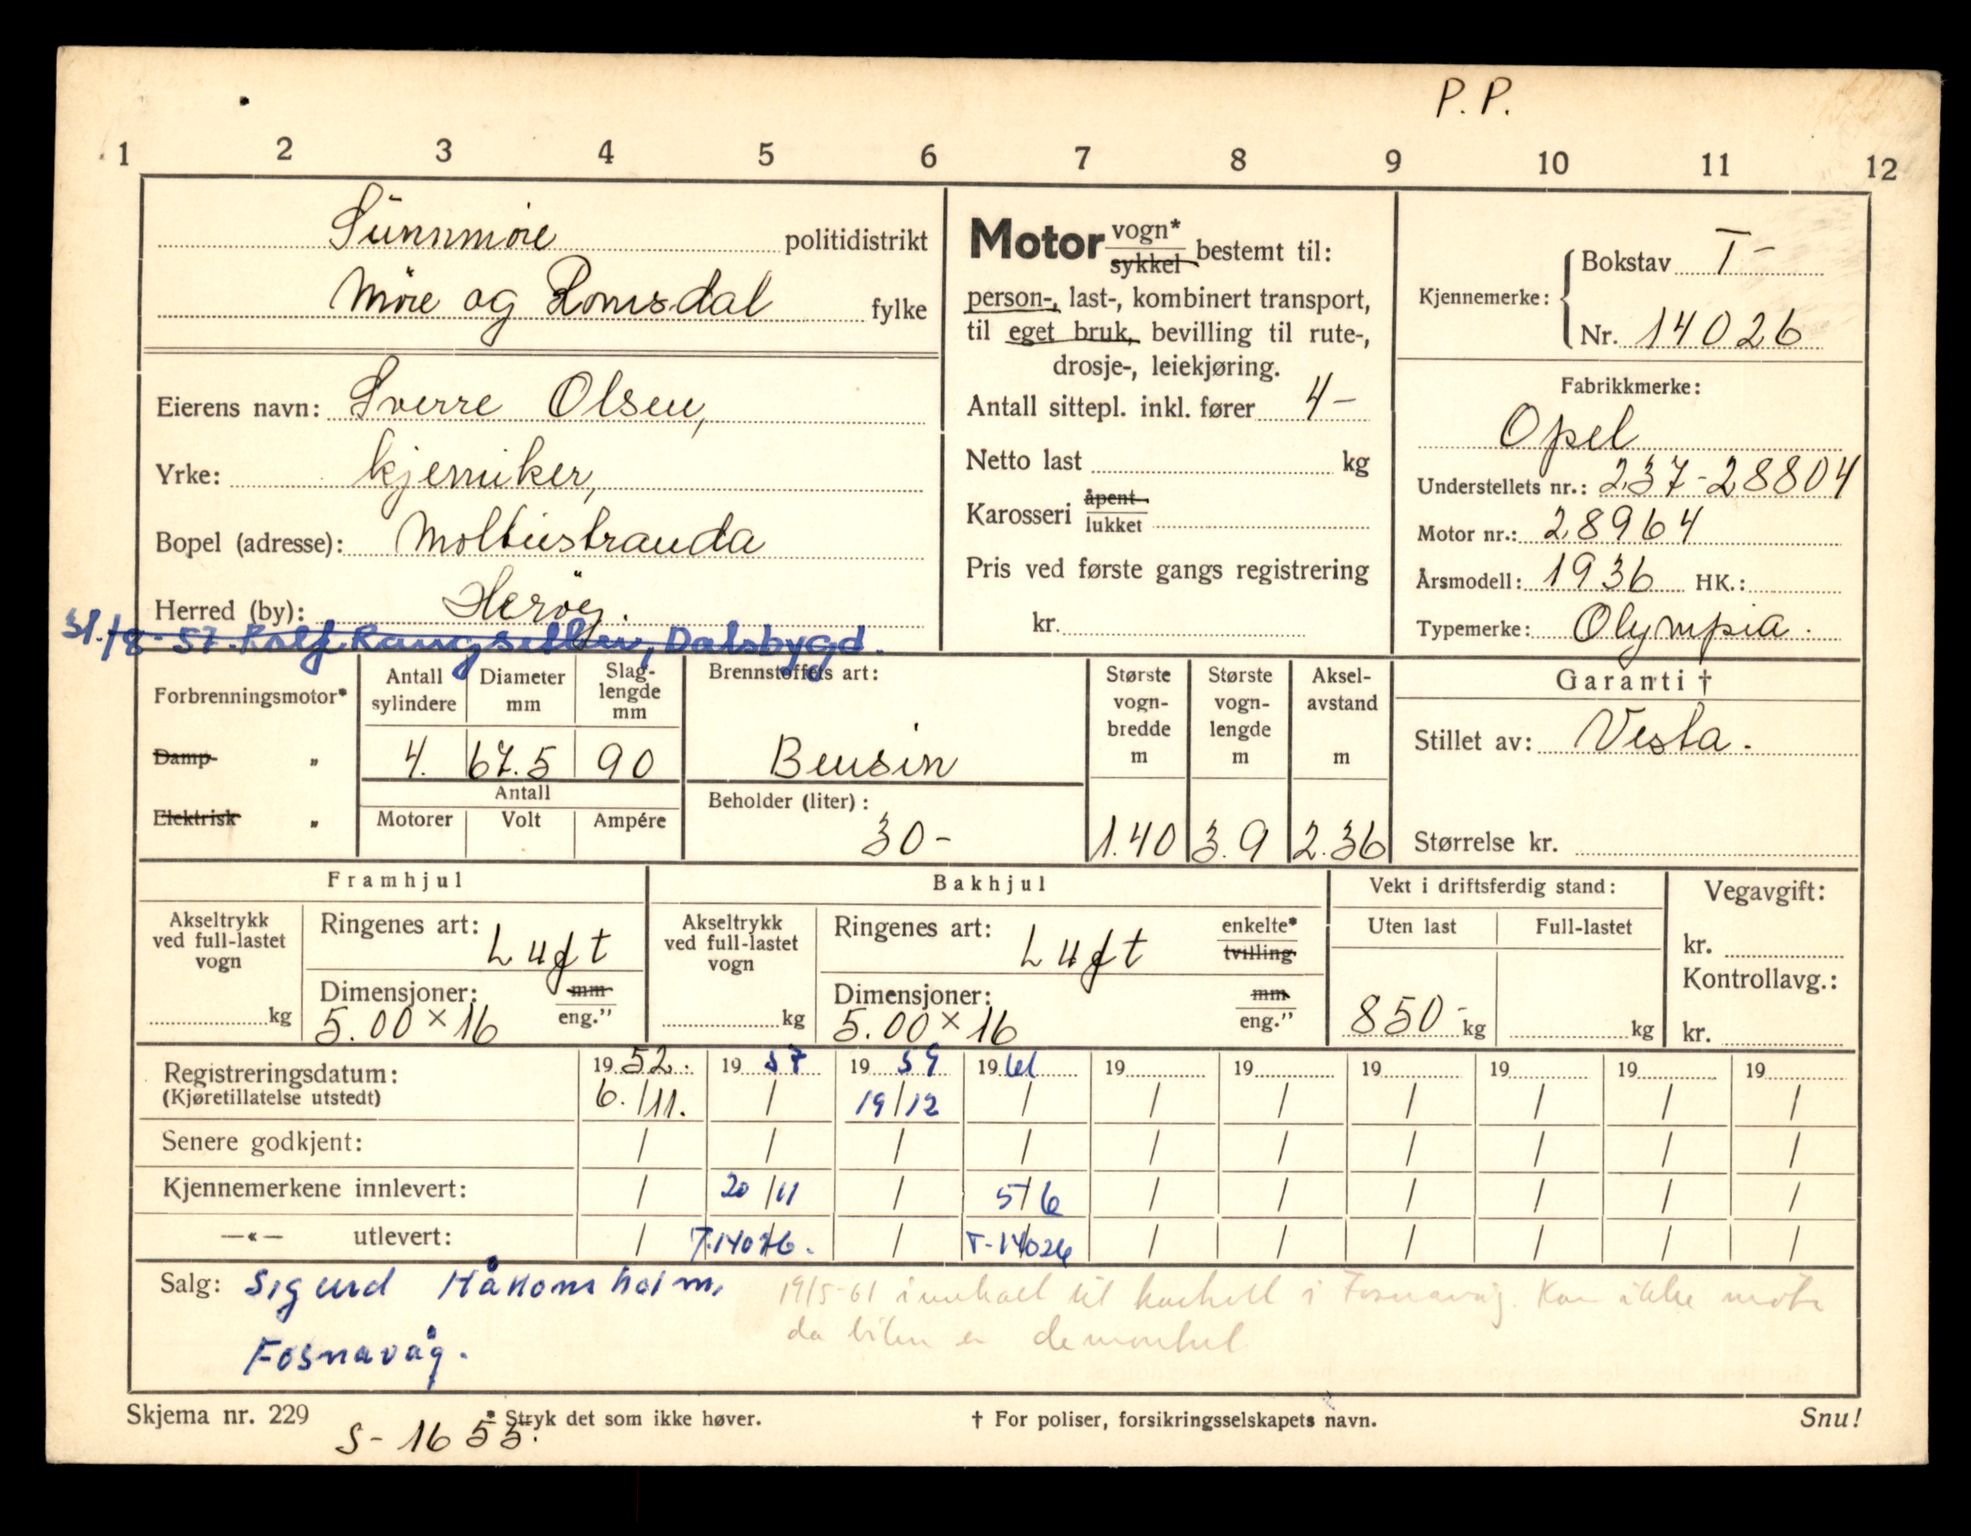 P. P.
1 2 3 4 5 6 7 8 9 10 11 12
Sünnmöre politidistrikt
Möre og Romsdal fylke
Eierens navn: Sverre Olsen,
Yrke: kjemiker,
Bopel (adresse): Moltustranda
Herred (by): Heröy.
31./8-57. Rolf Rangsether, Dalsbygd.
Motor vogn* sykkel bestemt til:
person-, last-, kombinert transport,
til eget bruk, bevilling til rute-,
drosje-, leiekjøring.
Antall sittepl. inkl. fører 4-
Netto last kg
Karosseri åpent lukket
Pris ved første gangs registrering
kr.
Kjennemerke: Bokstav T-
Nr. 14026
Fabrikkmerke:
Opel
Understellets nr.: 237-28804
Motor nr.: 28964
Årsmodell: 1936 HK.:
Typemerke: Olympia.
Forbrenningsmotor*
Damp- „
Elektrisk „
Antall sylindere
Diameter mm
Slag-lengde mm
4. 67.5 90
Antall
Motorer Volt Ampére
Brennstoffets art:
Bensin
Beholder (liter):
30-
Største vogn-bredde m
1.40
Største vogn-lengde m
3.9
Aksel-avstand m
2.36
Garanti †
Stillet av: Vesta.
Størrelse kr.
Framhjul
Akseltrykk ved full-lastet vogn
kg
Ringenes art: Luft
Dimensjoner: mm eng."
5.00 × 16
Bakhjul
Akseltrykk ved full-lastet vogn
kg
Ringenes art: Luft enkelte* tvilling
Dimensjoner: mm eng."
5.00 × 16
Vekt i driftsferdig stand:
Uten last Full-lastet
850- kg kg
Vegavgift:
kr.
Kontrollavg.:
kr.
Registreringsdatum: 1952. 1957 1959 1961 19 19 19 19 19 19
(Kjøretillatelse utstedt) 6./11. / 19/12 / / / / / / /
Senere godkjent: / / / / / / / / / /
Kjennemerkene innlevert: / 20/11 / 5/6 / / / / / /
—«— utlevert: / T.14026. / T-14026 / / / / / /
Salg: Sigurd Håkonsholm,
Fosnavåg.
19/5-61 innkalt til kontroll i Fosnavåg. Kan ikke møte
da bilen er demontert
Skjema nr. 229
* Stryk det som ikke høver.
† For poliser, forsikringsselskapets navn.
Snu!
S-1655.